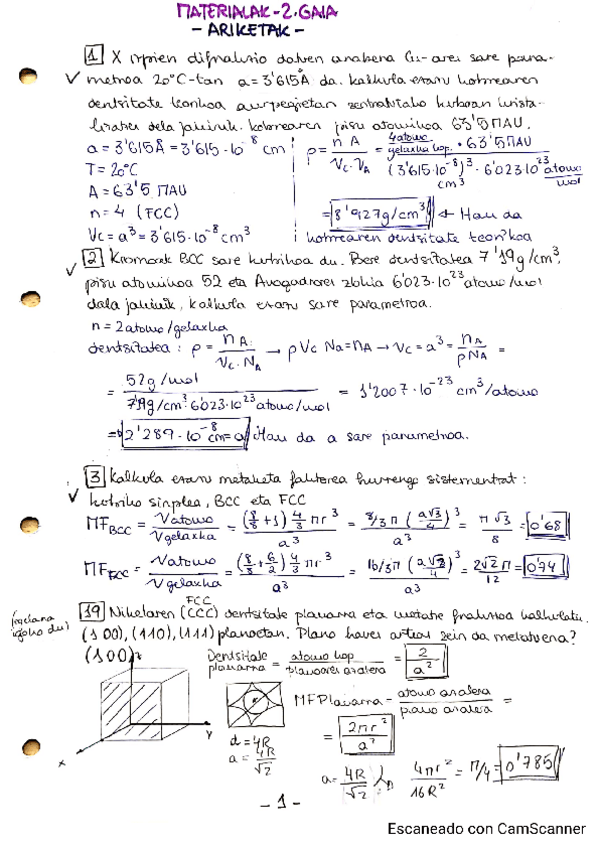 MATERIALAK-2.GAIA
- ARIKETAK -
1 X izpien difrakzio datuen arabera Cu-aren sare para-
metroa 20°C-tan a = 3'615Å da. kalkula ezazu kobrearen
dentsitate teorikoa aurpegietan zentratutako kuboan krista-
lizatzen dela jakinik. kobrearen pisu atomikoa 63'5 ΠAU.
a = 3'615Å = 3'615·10⁻⁸ cm
T = 20°C
A = 63'5 ΠAU
n = 4 (FCC)
Vc = a³ = 3'615·10⁻⁸ cm³
ρ = n A / Vc·VA = 4 atomo/gelaxka kop. · 63'5 ΠAU / (3'615·10⁻⁸)³ cm³ · 6'023·10²³ atomo/mol
= 8'927g/cm³ ← Hau da
kobrearen dentsitate teorikoa
2 Kromoak BCC sare kubikoa du. Bere dentsitatea 7'19g/cm³,
pisu atomikoa 52 eta Avogadroren zbkia 6'023·10²³ atomo/mol
dela jakinik, kalkula ezazu sare parametroa.
n = 2 atomo/gelaxka
dentsitatea: ρ = n A / Vc·NA → ρ Vc Na = nA → Vc = a³ = nA / ρNA =
= 52g/mol / 7'19g/cm³·6'023·10²³ atomo/mol = 1'2007·10⁻²³ cm³/atomo
= 2'289·10⁻⁸ cm = a Hau da a sare parametroa.
3 Kalkula ezazu metaketa faktorea hurrengo sistementzat:
kubiko sinplea, BCC eta FCC
MF BCC = V atomo / V gelaxka = (8/8 + 1) 4/3 πr³ / a³ = 8/3 π (a√3/4)³ / a³ = π√3 / 8 = 0'68
MF FCC = V atomo / V gelaxka = (8/8 + 6/2) 4/3 πr³ / a³ = 16/3 π (a√2/4)³ / a³ = 2√2 π / 12 = 0'74
19 Nikelaren (CCC) dentsitate planarra eta metatze faktorea kalkulatu.
FCC
(100), (110), (111) planoetan. Plano hauen artean zein da metatuena?
(100)
z
y
x
Dentsitate planarra = atomo kop / planoaren azalera = 2 / a²
d = 4R
a = 4R / √2
MF Planarra = atomo azalera / plano azalera =
= 2πr² / a²
a = 4R / √2
4πr² / 16R² = π/4 = 0'785
- 1 -
Escaneado con CamScanner